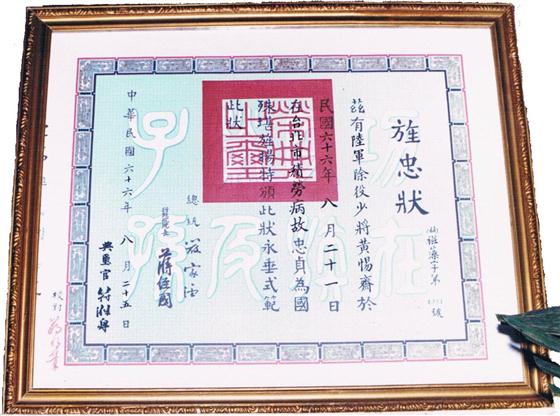 旌忠狀
旌藻字第
號
茲有陸軍除役少將黃惕齋於
民國六十六年八月二十一日
在台北市積勞病故忠貞為國
殊堪旌揚特頒此狀永垂式範
此狀
榮典之璽
總統 嚴家淦
行政院長 蔣經國
中華民國六十六年八月二十五日
典璽官
校對